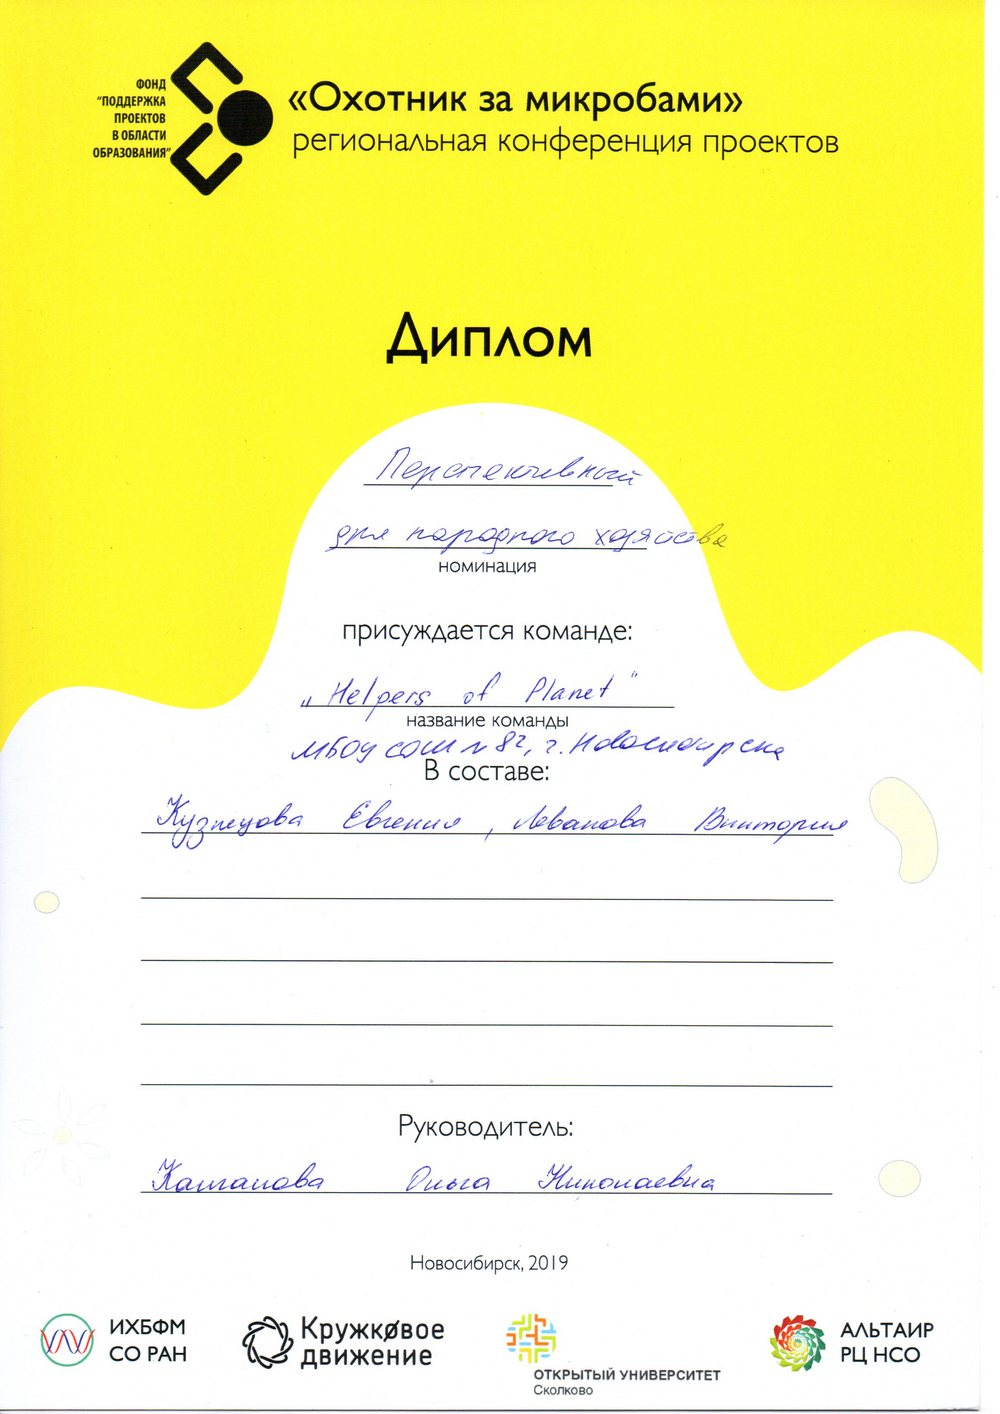 ФОНД
"ПОДДЕРЖКА
ПРОЕКТОВ
В ОБЛАСТИ
ОБРАЗОВАНИЯ"
«Охотник за микробами»
региональная конференция проектов
Диплом
Перспективный
для народного хозяйства
номинация
присуждается команде:
„Helpers of Planet"
название команды
МБОУ СОШ № 82, г. Новосибирска
В составе:
Кузнецова Евгения, Леванова Виктория
Руководитель:
Ольга Николаевна
Новосибирск, 2019
ИХБФМ
СО РАН
Кружковое
движение
ОТКРЫТЫЙ УНИВЕРСИТЕТ
Сколково
АЛЬТАИР
РЦ НСО